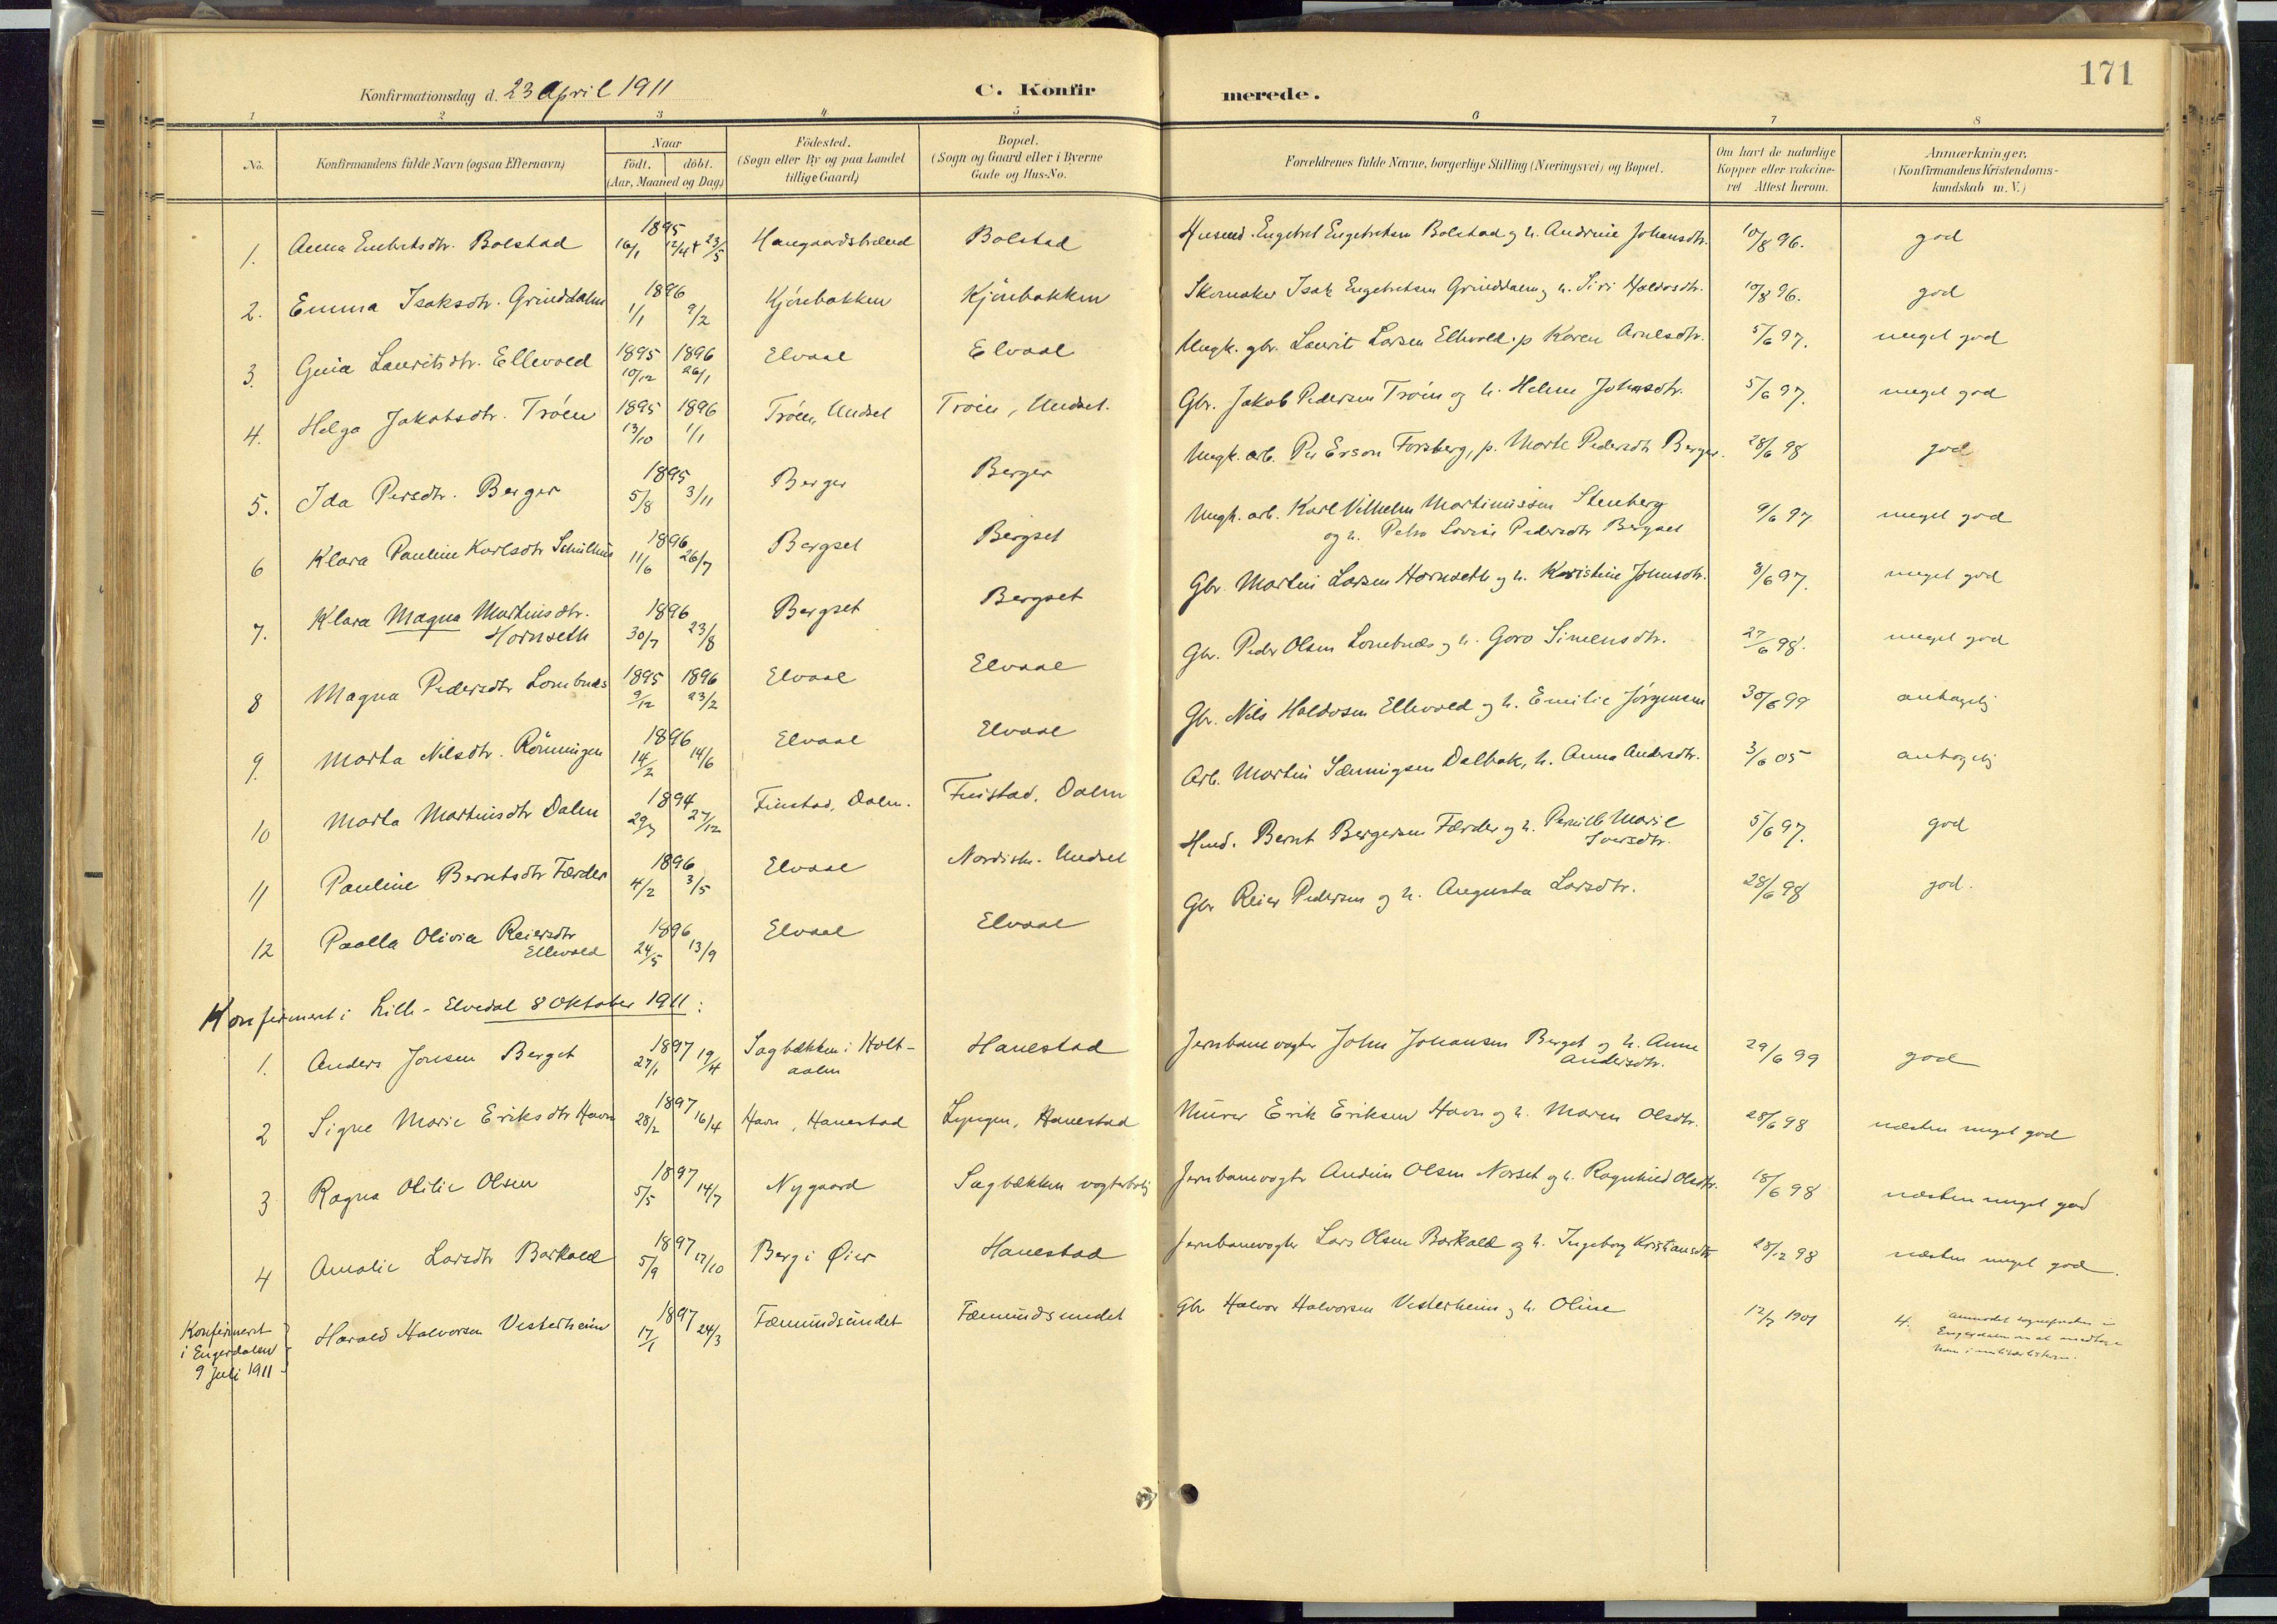 171
Konfirmationsdag d. 23 April 1911
C. Konfirmerede.
1 2 3 4 5 6 7 8
No. Konfirmandens fulde Navn (ogsaa Efternavn) Naar födt. döbt. (Aar, Maaned og Dag) Födested. (Sogn eller By og paa Landet tillige Gaard) Bopæl. (Sogn og Gaard eller i Byerne Gade og Hus-No. Forældrenes fulde Navne, borgerlige Stilling (Næringsvei) og Bopæl. Om havt de naturlige Kopper eller vaccineret Attest herom. Anmærkninger. (Konfirmandens Kristendomskundskab m. V.)
1. Anna Embretsdtr. Bolstad 1895 16/1 12/4 + 23/5 Bolstad Engebret Engebretsen Bolstad og h. Andrine Johansdtr. 10/8 96. god
2. Emma Isaksdtr. Grinddalen 1896 1/1 9/2 Kjönbakken Kjönbakken Skomaker Isak Engebretsen Grinddalen og h. Siri Haldosdtr. 10/8 96. god
3. Guia Lauritsdtr. Ellevold 1895 10/12 1896 26/1 Elvaal Elvaal Ungk. gbr. Laurit Larsen Ellevold, p Karen Arnesdtr. 5/6 97. meget god
4. Helga Jakobsdtr. Tröen 1895 13/10 1896 1/1 Tröen, Undset Tröen, Undset. Gbr. Jakob Pedersen Tröen og h. Helene Johnsdtr. 5/6 97. meget god
5. Ida Persdtr. Berger 1895 5/8 3/11 Berger Berger Ungk. arb. Per Erson Forsberg, p. Marte Pedersdtr Berger. 28/6 98 god
6 Klara Pauline Karlsdtr 1896 11/6 26/7 Bergset Bergset Ungk. arb. Karl Vilhelm Martinussen Stenberg
og h. Petra Lovise Pedersdtr Bergset 9/6 97 meget god
7. Klara Magna Martinsdtr.
Hornseth 1896 30/7 23/8 Bergset Bergset Gbr. Martin Larsen Hornseth og h. Karistine Johnsdtr. 8/6 97. meget god
8 Magna Pedersdtr Lombnes 1895 9/12 1896 23/2 Elvaal Elvaal Gbr. Peder Olsen Lombnes og h. Goro Simensdtr. 27/6 98. meget god
9. Marta Nilsdtr. Rönningen 1896 14/2 14/6 Elvaal Elvaal Gbr. Nils Haldosen Ellevold og h. Emilie Jörgensen 30/6 99 antagelig
10 Marta Martinsdtr Dalen 1894 29/7 27/12 Finstad, Dalen. Finstad, Dalen Arb. Martin Dalbak, h. Anna Andersdtr. 3/6 05 antagelig
11 Pauline Berntsdtr Færder 1896 4/2 3/5 Elvaal Undset Hmd. Bernt Bergersen Færder og h. Pernille Marie
Iversdtr. 5/6 97. god
12 Paolla Olivia Reiersdtr
Ellevold 1896 24/5 13/9 Elvaal Elvaal Gbr Reier Pedersen og h. Augusta Larsdtr. 28/6 98 god.
Konfirmert i Lille-Elvedal 8 Oktober 1911:
1. Anders Jonsen Berget 1897 27/1 19/4 Sagbækken i Holt-
aalen Hanestad Jernbanevogter John Johansen Berget og h. Anne
Andersdtr. 29/6 99 god
2 Signe Marie Eriksdtr Havn 1897 28/2 16/4 Havn, Hanestad Lyngen, Hanestad Murer Erik Eriksen Havn og h. Maren Olsdtr. 28/6 98 næsten meget god
3 Ragna Otilie Olsen 1897 5/5 14/7 Nygaard Sagbækken vogterbolig Jernbanevogter Olsen Norset og h. Ragnhild Olsdtr. 18/6 98 næsten meget god
4 Amalie Larsdtr Barkald 1897 5/9 17/10 Berg i Øier Hanestad Jernbanevogter Lars Olsen Barkald og h. Ingeborg Kristiansdtr 28/12 98 næsten meget god.
Konfirmeret
i Engerdalen
9 Juli 1911 Harald Halvorsen Vesterheim 1897 17/1 24/3 Fæmundsundet Fæmundsundet Gbr Halvor Halvorsen Vesterheim og h. Oline 12/7 1901 4. Anmodet sognepresten i
Engerdalen om at medtage
ham i militærlisterne.